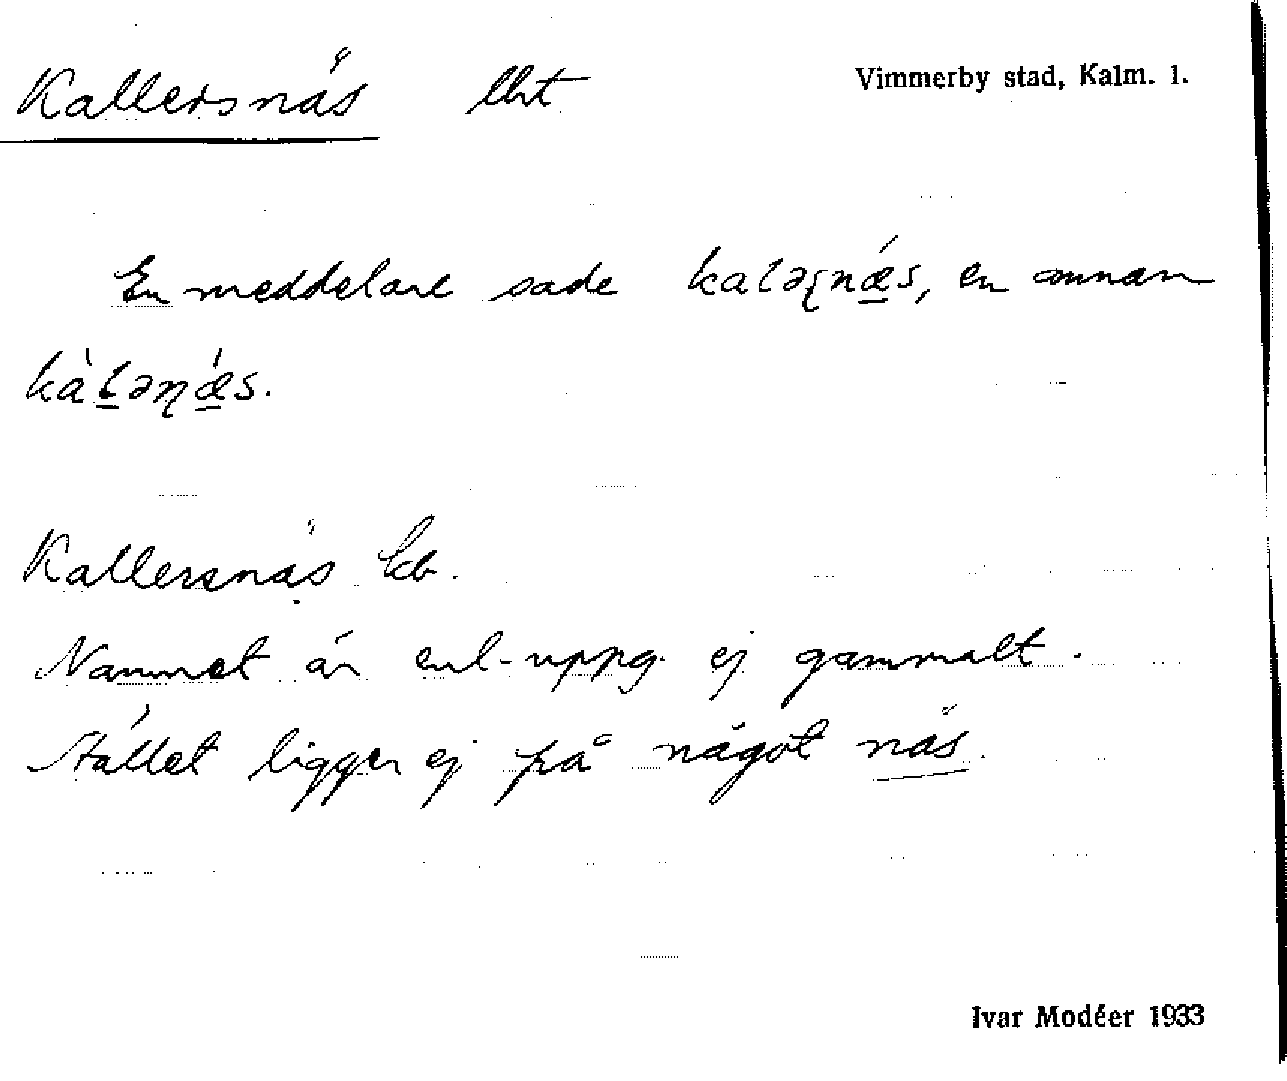 Kallersnäs lht Vimmerby stad, Kalm. l.
En meddelare sade kaləʂnǽs, en annan
kàləɳǽs.
Kallersnäs kb.
Namnet är enl. uppg. ej gammalt.
Stället ligger ej på något näs.
Ivar Modéer 1933